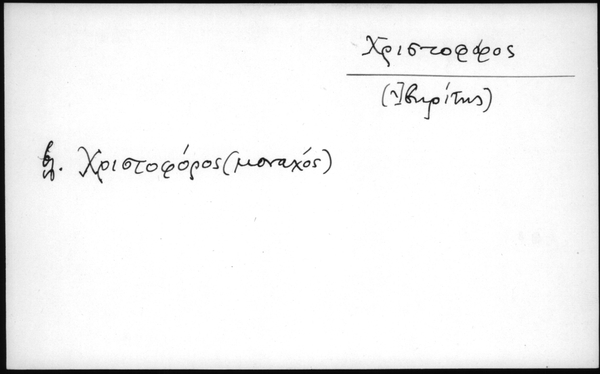 Χριστοφόρος
(Ἰβηρίτης)
βλ. Χριστοφόρος (μοναχός)